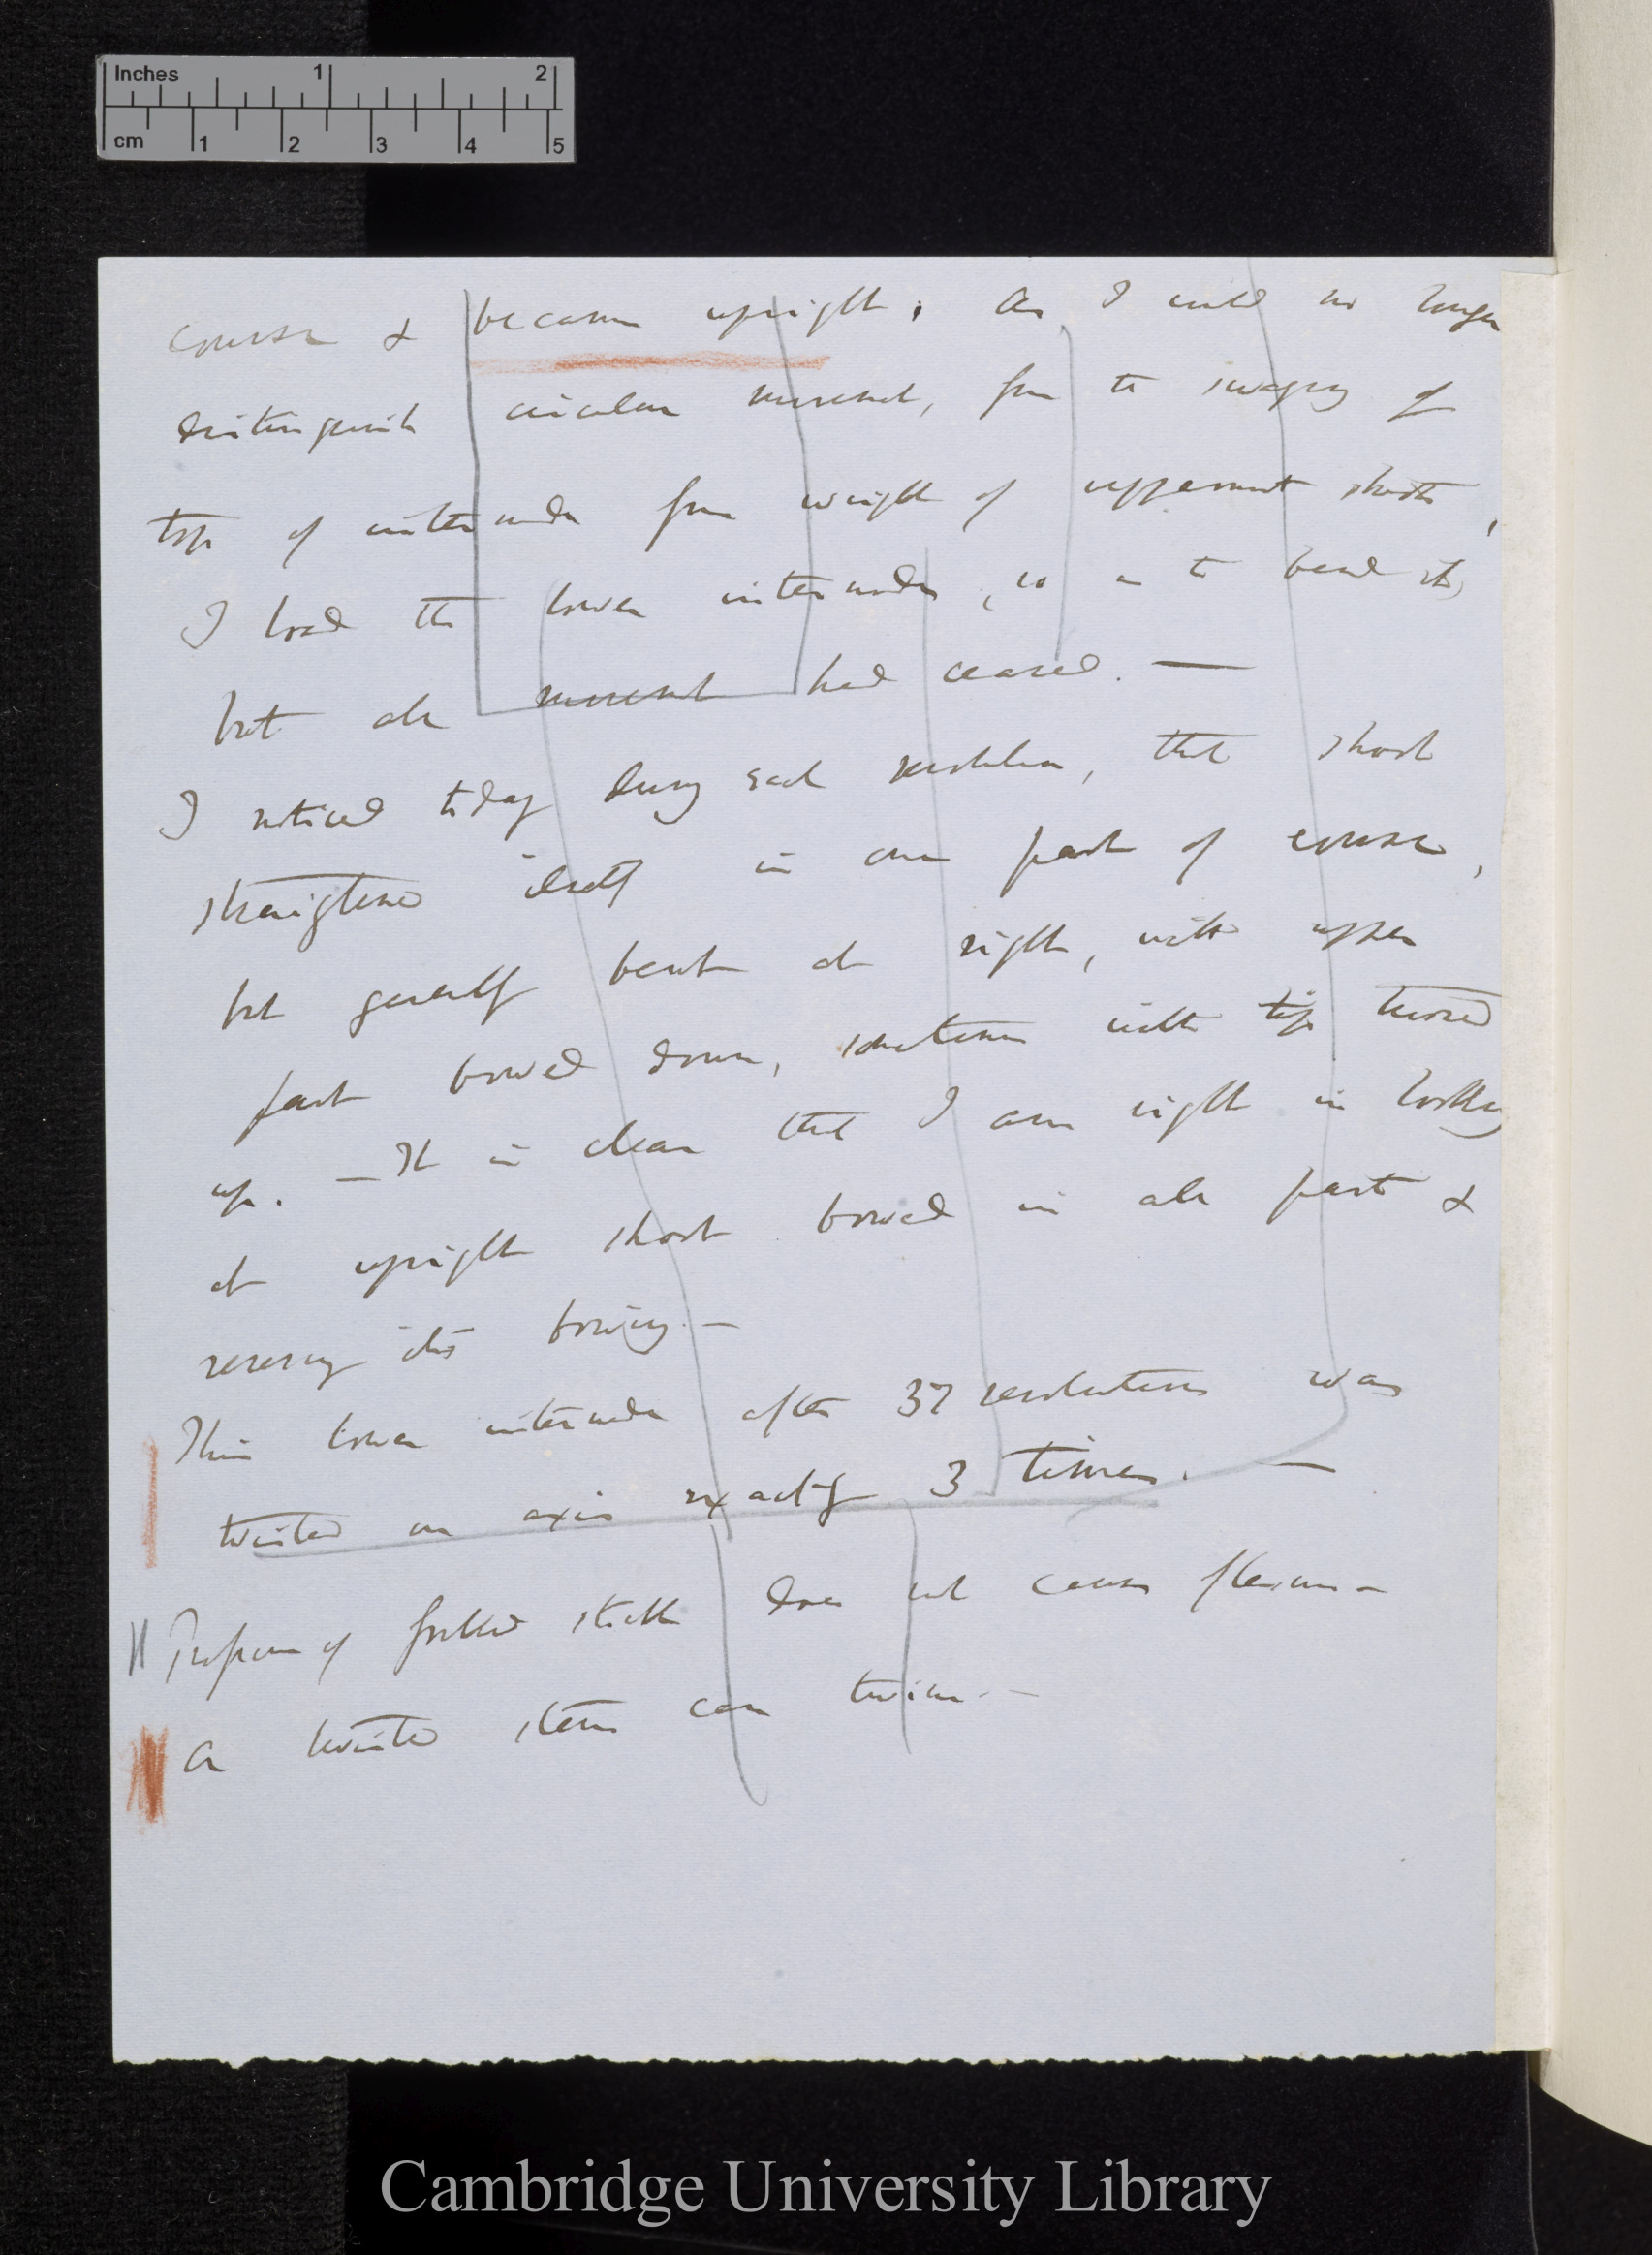 Inches 1 2
cm 1 2 3 4 5
course & became upright. As I could no longer
distinguish circular movement, from the swaying of
top of internode from weight of uppermost shoots,
I the lower internode, so as to bend it,
but all movement had ceased. —
I noticed today during each revolution, that shoot
straightened itself in one part of course,
but generally bent at right, with upper
part bowed down, sometimes with tip turned
up. — It is clear that I am right in looking
at upright shoot bowed in all parts &
reversing its bowing. —
This lower internode after 37 revolutions was
twisted on axis exactly 3 times. —
of forked stick does not cause flexure —
A twisted stem can twine. —
Cambridge University Library